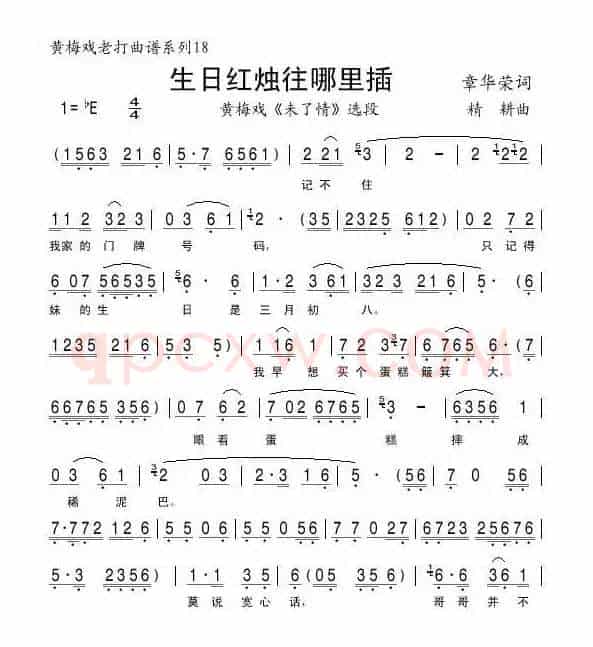 黄梅戏老打曲谱系列18
生日红烛往哪里插
章华荣词
1=♭E 4/4 黄梅戏《未了情》选段 精 耕曲
(1563 216 | 5·7 6561) | 2 21 53 | 2 - 2 122 |
记不 住
112 323 | 03 61 | 12 · (35 | 2325 612) | 02 72 |
我家的门牌 号 码, 只记得
6 07 56535 | 56 · 6 | 1·2 351 | 323 216 | 5· (6 |
妹的生 日 是三月初 八。
1235 2161 | 5765 350) | 1 16 | 72 37 | 6 765 6· |
我早想买个蛋糕簸箕大,
66765 356) | 07 62 | 7 02 6765 | 53 - | 6356 1 |
眼看蛋 糕摔成
03 61 | 32 - | 2 2·765 | 356 · (56 | 7 0 56 |
稀泥巴。
7·772 126 | 5·135 6532 | 1·612 3532 | 1612 3276 |
5·3 2356) | 1·1 35 | 6 (05 356) | 16·6 36 |
莫说宽心话, 哥哥并不
qpcxw.COM